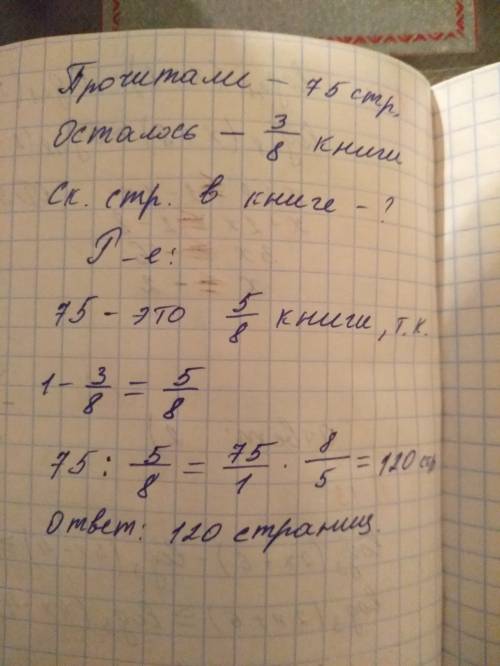 Прочитали - 75 стр.
Осталось - 3/8 книги
Ск. стр. в книге - ?
Р-е:
75 - это 5/8 книги, т.к.
1 - 3/8 = 5/8
75 : 5/8 = 75/1 · 8/5 = 120 стр
Ответ: 120 страниц.